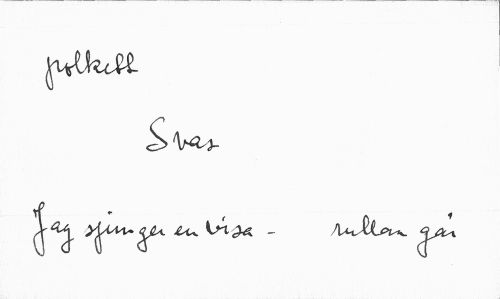 polkett
Svas
Jag sjunger en visa - rullan går